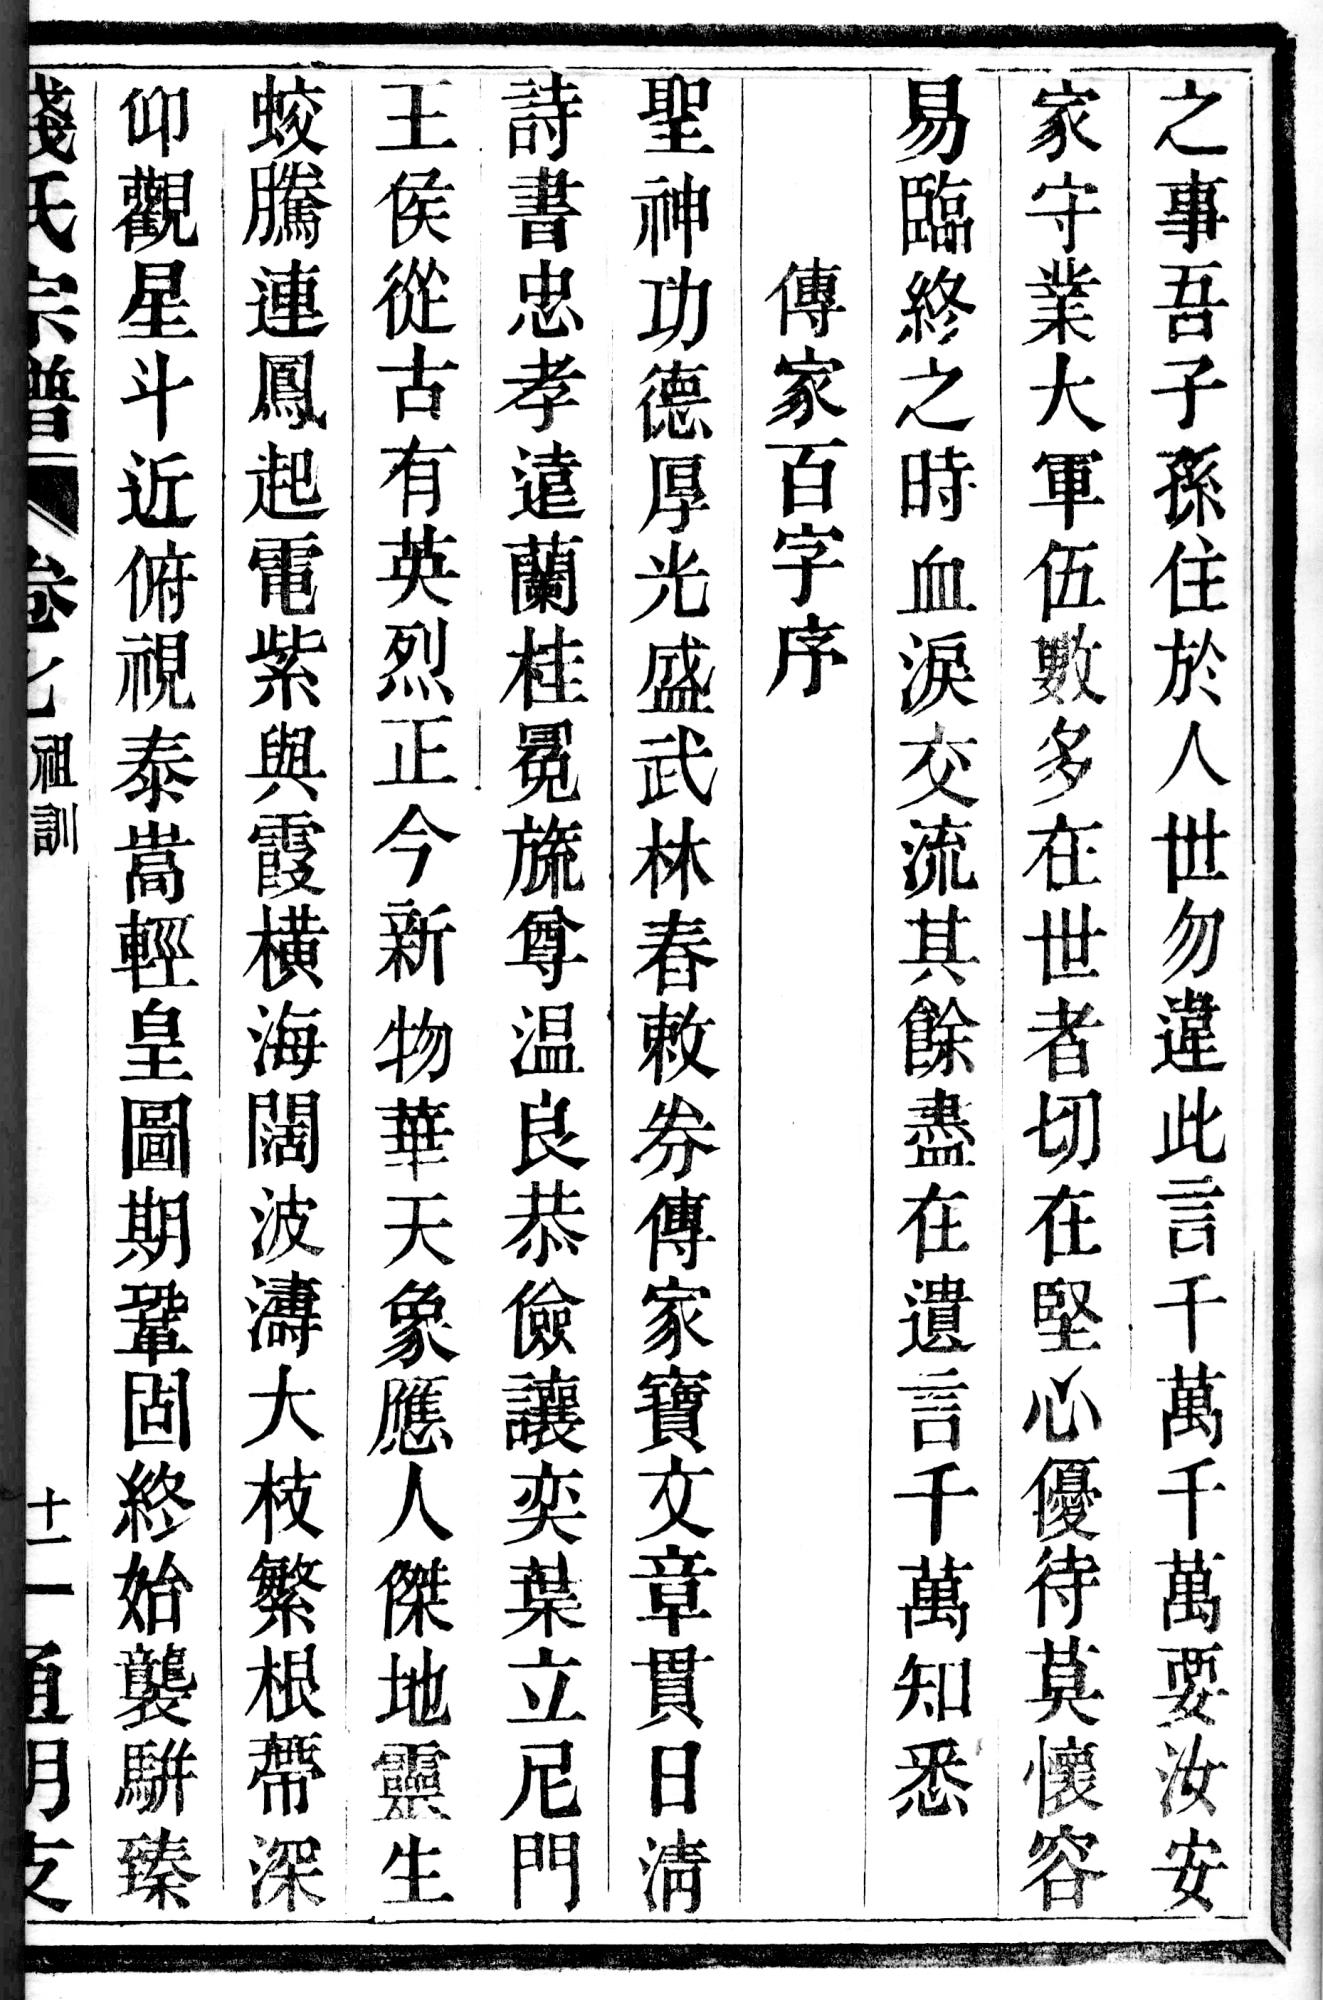 之事吾子孫住於人世勿違此言千萬千萬要汝安
家守業大軍伍數多在世者切在堅心優待莫懷容
易臨終之時血淚交流其餘盡在遺言千萬知悉
傳家百字序
聖神功德厚光盛武林春敕券傳家寶文章貫日清
詩書忠孝遠蘭桂冕旒尊温良恭儉讓奕葉立尼門
王侯從古有英烈正今新物華天象應人傑地靈生
蛟騰連鳳起電紫與霞橫海闊波濤大枝繁根帶深
仰觀星斗近俯視泰嵩輕皇圖期鞏固終始襲駢臻
錢氏宗譜 卷之 祖訓 十一 通明支